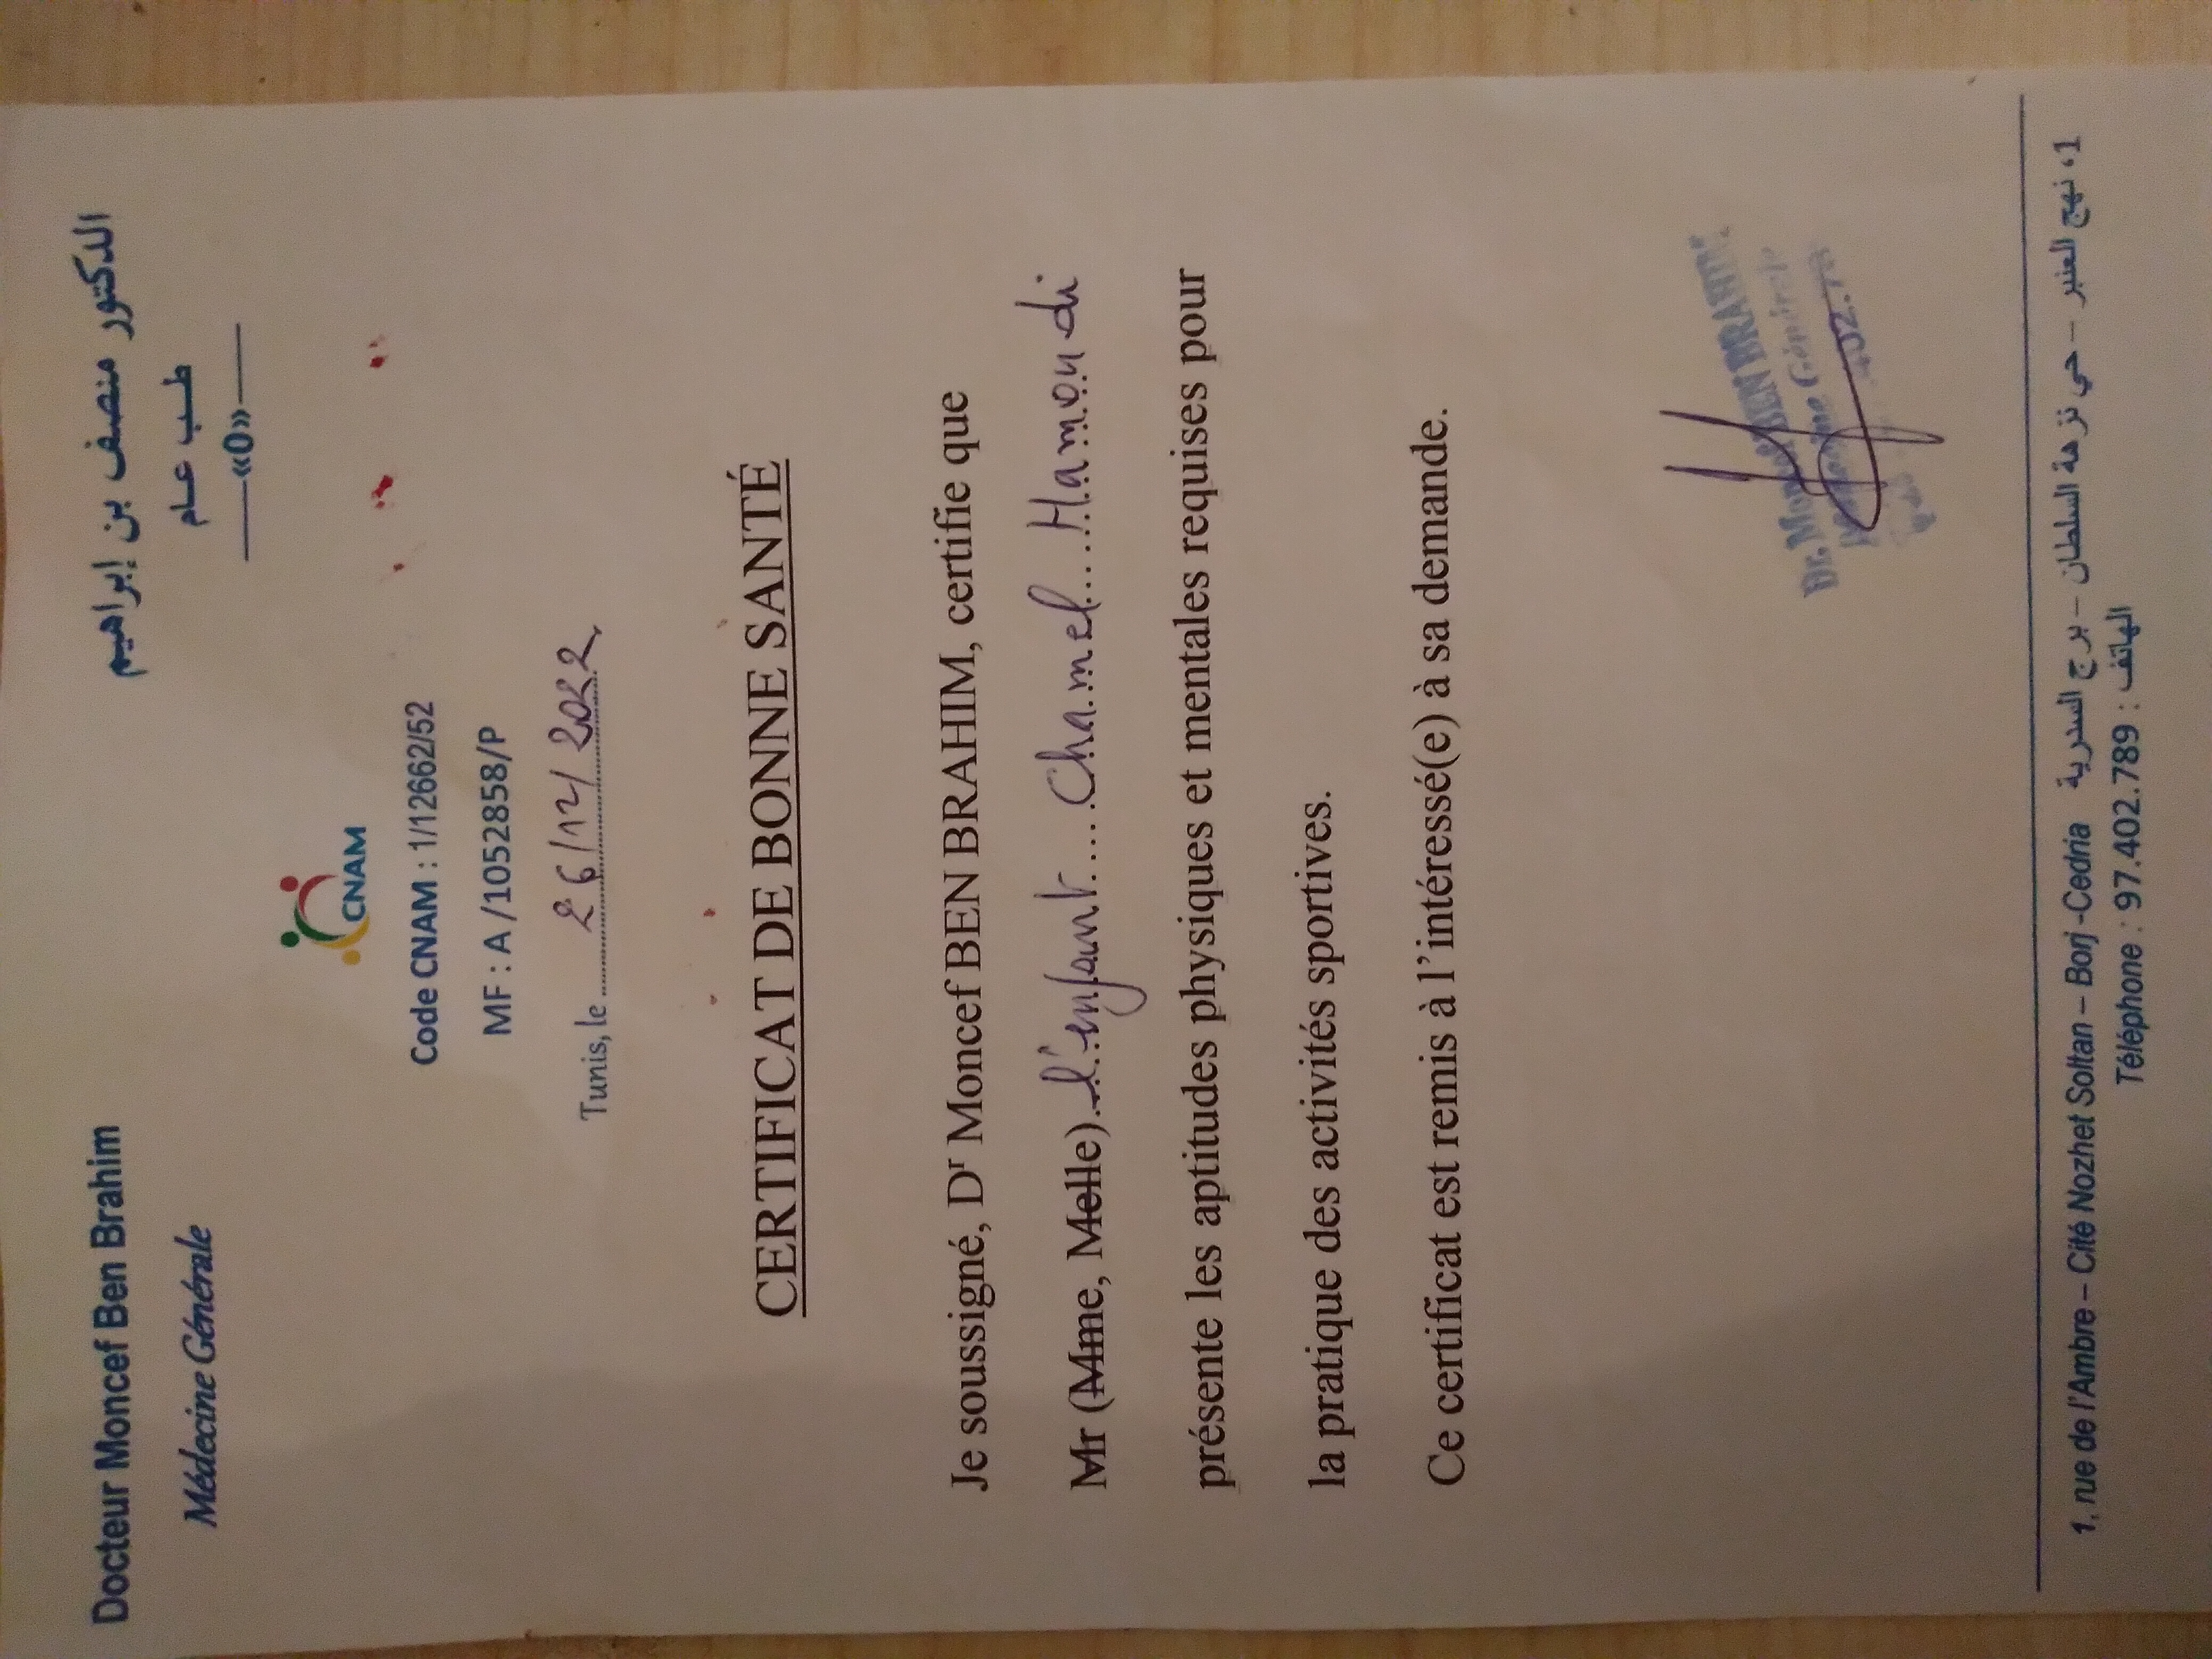 Docteur Moncef Ben Brahim
Médecine Générale
الدكتور منصف بن إبراهيم
طب عام
—«0»—
CNAM
Code CNAM : 1/12662/52
MF : A /1052858/P
Tunis, le 26/12/2022
CERTIFICAT DE BONNE SANTÉ
Je soussigné, Dr Moncef BEN BRAHIM, certifie que
Mr (Mme, Melle) l'enfant Chamel Hamoudi
présente les aptitudes physiques et mentales requises pour
la pratique des activités sportives.
Ce certificat est remis à l'intéressé(e) à sa demande.
Dr. Moncef BEN BRAHIM
Médecine Générale
1, rue de l'Ambre – Cité Nozhet Soltan – Borj -Cedria 1، نهج العنبر – حي نزهة السلطان – برج السدرية
Téléphone : 97.402.789 : الهاتف